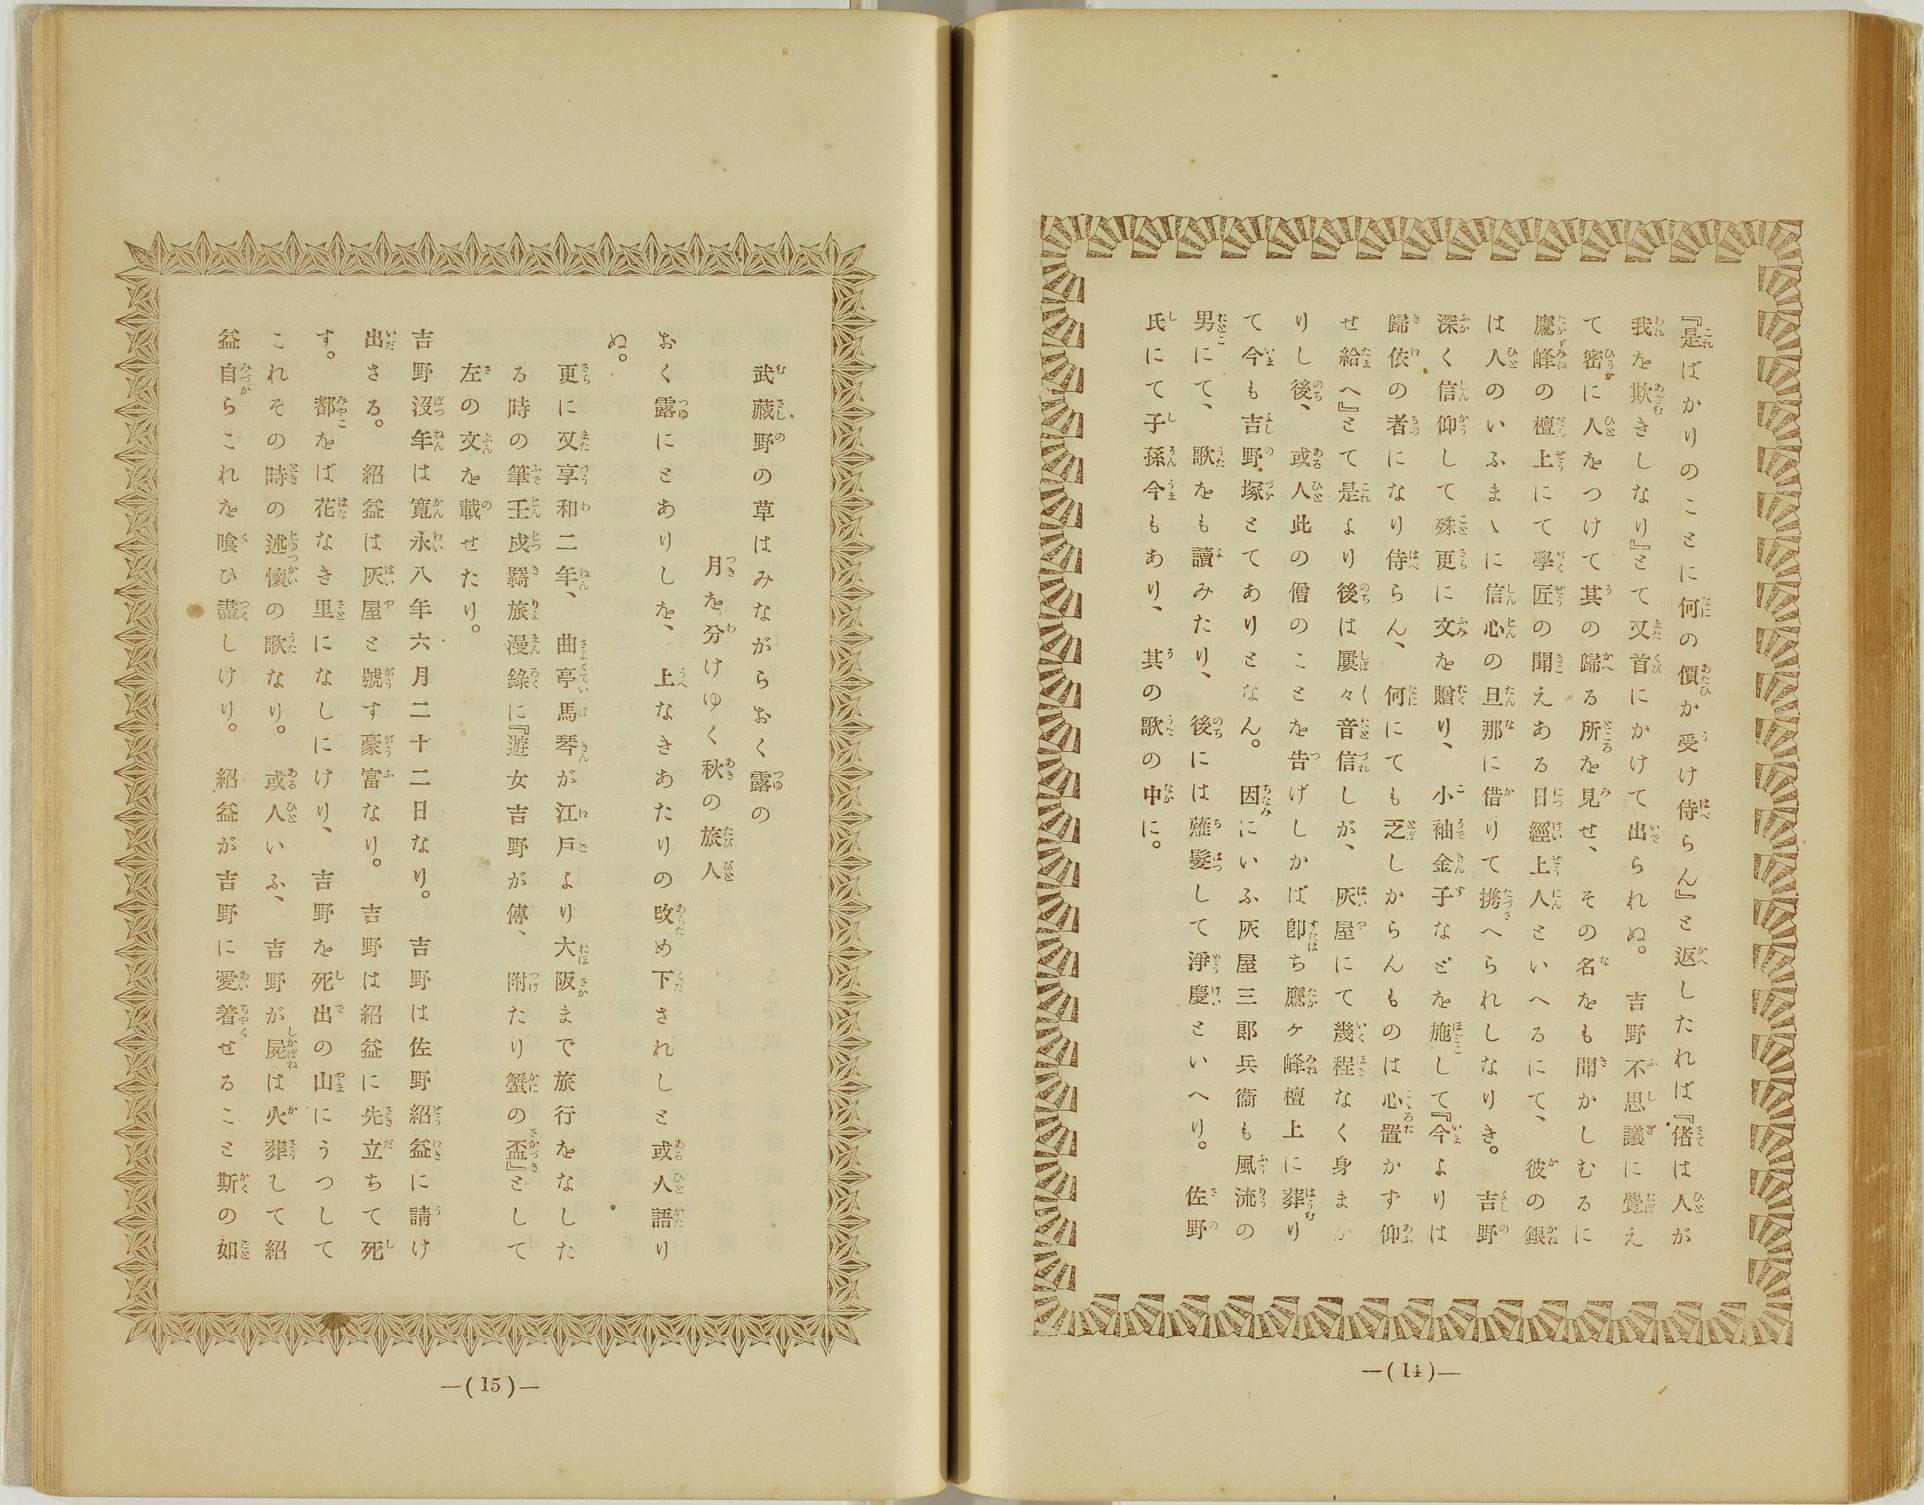 『是ばかりのことに何の價か受け侍らん』と返したれば『偖は人が
我を欺きしなり』とて又首にかけて出られぬ。吉野不思議に覺え
て密に人をつけて其の歸る所を見せ、その名をも聞かしむるに
鷹峰の檀上にて學匠の聞えある日經上人といへるにて、彼の銀
は人のいふまゝに信心の旦那に借りて携へられしなりき。吉野
深く信仰して殊更に文を贈り、小袖金子などを施して『今よりは
歸依の者になり侍らん、何にても乏しからんものは心置かず仰
せ給へ』とて是より後は屡々音信しが、灰屋にて幾程なく身まか
りし後、或人此の僧のことを告げしかば卽ち鷹ヶ峰檀上に葬り
て今も吉野塚とてありとなん。因にいふ灰屋三郎兵衞も風流の
男にて、歌をも讀みたり、後には薙髮して淨慶といへり。佐野
氏にて子孫今もあり、其の歌の中に。
—(14)—
武藏野の草はみながらおく露の
月を分けゆく秋の旅人
おく露にとありしを、上なきあたりの改め下されしと或人語り
ぬ。
更に又享和二年、曲亭馬琴が江戸より大阪まで旅行をなした
る時の筆壬戍羇旅漫錄に『遊女吉野が傳、附たり蟹の盃』として
左の文を載せたり。
吉野沒年は寬永八年六月二十二日なり。吉野は佐野紹益に請け
出さる。紹益は灰屋と號す豪富なり。吉野は紹益に先立ちて死
す。都をば花なき里になしにけり、吉野を死出の山にうつして
これその時の述懷の歌なり。或人いふ、吉野が屍は火葬して紹
益自らこれを喰ひ盡しけり。紹益が吉野に愛着せること斯の如
—(15)—